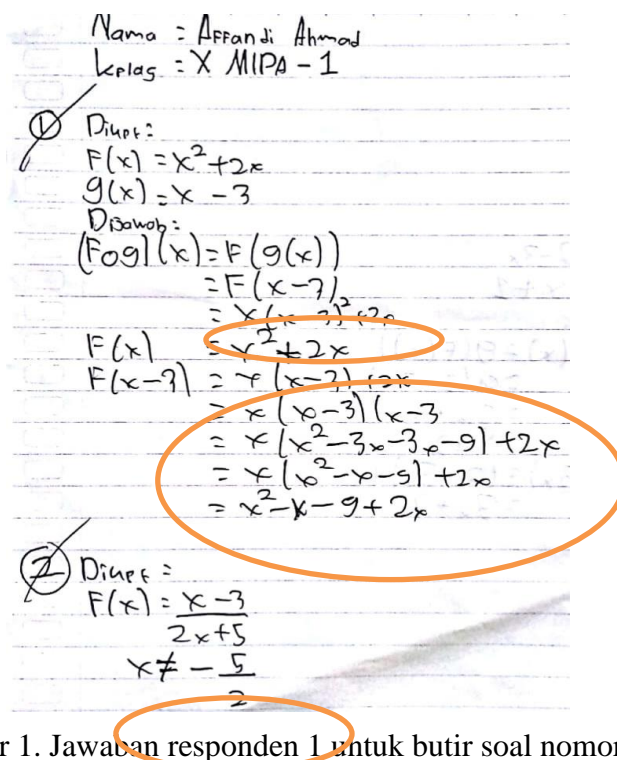 Nama : Affandi Ahmad
Kelas : X MIPA - 1
① Diket :
F(x) = x² + 2x
g(x) = x - 3
Dijawab :
(Fog)(x) = F(g(x))
= F(x-3)
= x(x-3)² + 2x
F(x) = x² + 2x
F(x-3) = x(x-3) + 2x
= x(x-3)(x-3
= x(x²-3x-3x-9) + 2x
= x(x²-x-9) + 2x
= x²-x-9+2x
② Diket :
F(x) = x-3
2x+5
x ≠ - 5
2
r 1. Jawaban responden 1 untuk butir soal nomor